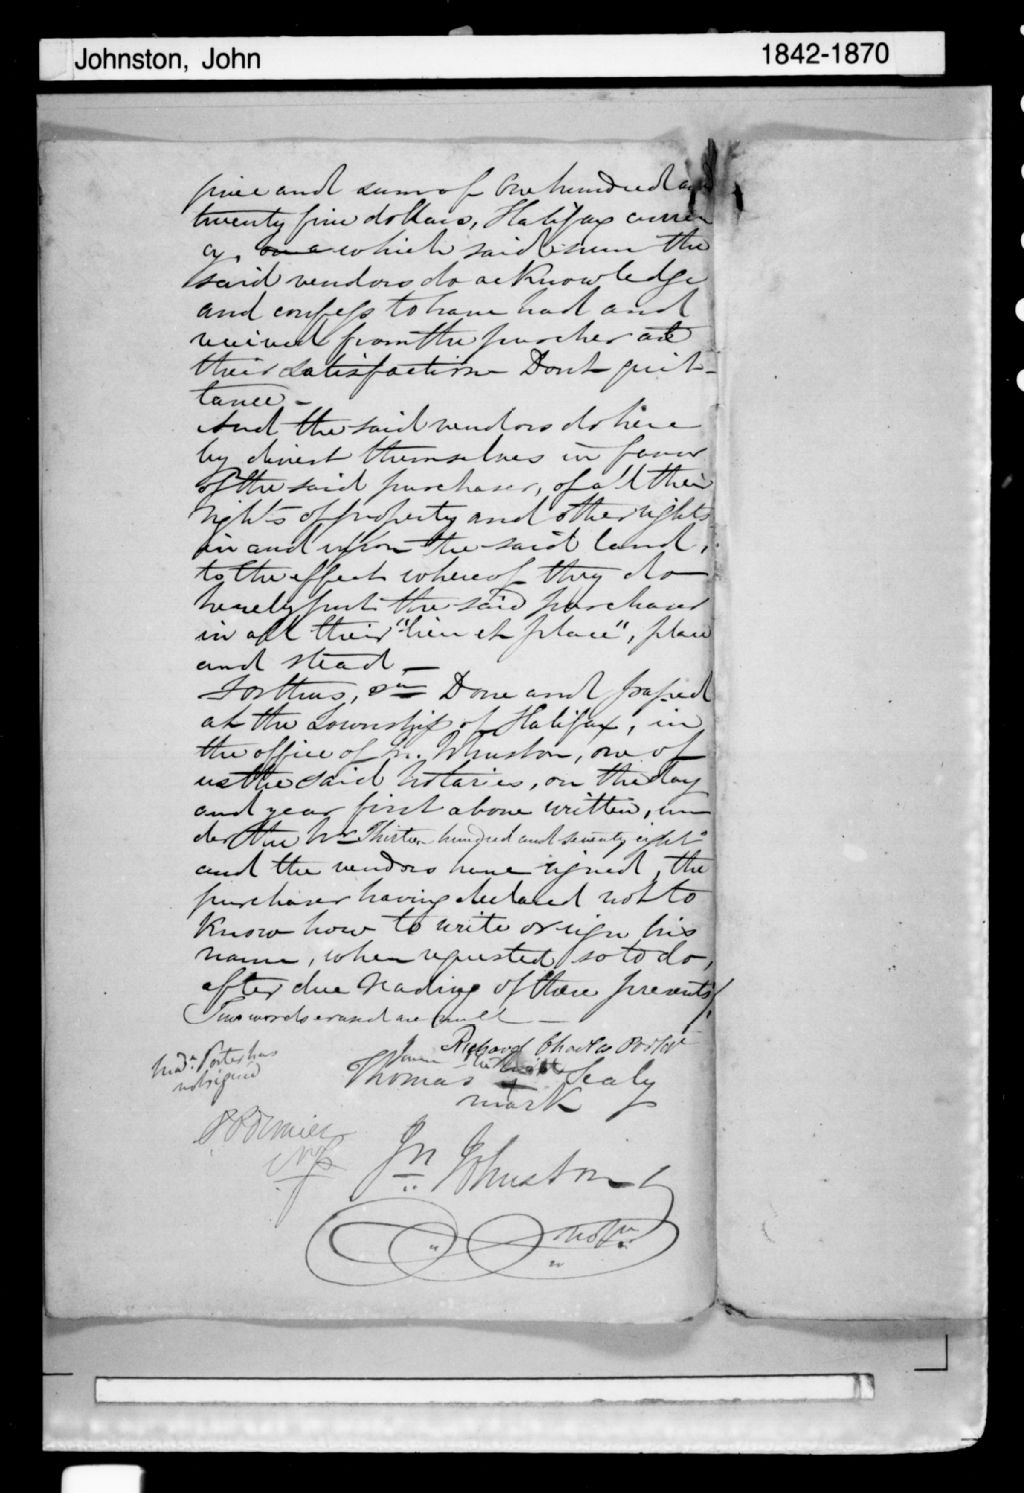 Johnston, John 1842-1870
price and sum of One hundred and
twenty five dollars, Halifax curren
cy, which said sum the
said vendors do acknowledge
and confess to have had and
received from the purcher at
their satisfaction Dont quit-
tance -
And the said vendors do here
by divest themselves in favor
of the said purchaser, of all their
rights of property and other rights
in and upon the said land,
to the effect whereof they do
hereby put the said purchaser
in all their "lieu et place", place
and stead -
For thus, &a Done and passed
at the Township of Halifax, in
the office of Jn. Johnston, one of
us the said Notaries, on the day
and year first above written, un
der the No. Thirteen hundred and seventy eight
and the vendors have signed, the
purchaser having declared not to
know how to write or sign his
name, when requested so to do,
after due reading of these presents/.
Two words erased are null -
Richard Charles Porter
Mada. Porter has
not signed
Thomas his Sealy
mark
NP
Jn Johnston
Not. Pu.